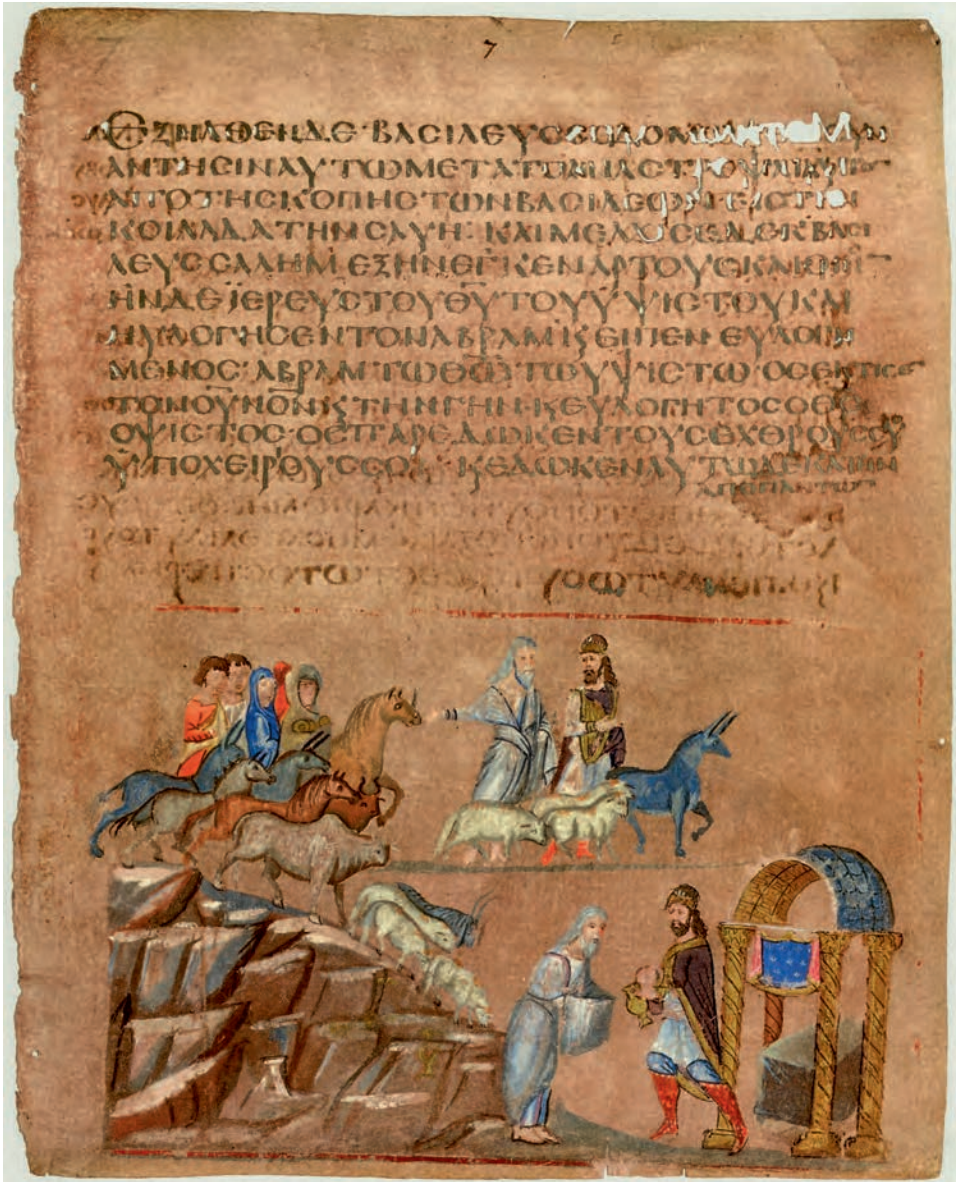 7
ΕΞΗΛΘΕΝΔΕ·ΒΑCΙΛΕΥCCΟΔΟΜΩΝ
ΑΝΤΗCΙΝΑΥΤΩΜΕΤΑΤΟ
ΑΠΟΤΗCΚΟΠΗCΤΩΝΒΑCΙΛΕΩΝ·ΕΙCΤΗΝ
ΚΟΙΛΑΔΑΤΗΝCΑΥΗ· ΚΑΙΜΕΛΧΙCΕΔΕΚΒΑCΙ
ΛΕΥCCΑΛΗΜ·ΕΞΗΝΕΓΚΕΝΑΡΤΟΥCΚΑΙ
ΗΝΔΕΪΕΡΕΥCΤΟΥΘ̅Υ̅ΤΟΥΥΨΙCΤΟΥΚΑΙ
ΗΥΛΟΓΗCΕΝΤΟΝΑΒΡΑΜϗΕΙΠΕΝ·ΕΥΛΟΓΗ
ΜΕΝΟC·ΑΒΡΑΜΤΩΘ̅Ω̅ΤΩΥΨΙCΤΩ·ΟCΕΚΤΙCΕ
ΤΟΝΟΥΝΟΝϗΤΗΝΓΗΝ·ϗΕΥΛΟΓΗΤΟCΟΘ̅C̅
ΟΥΨΙCΤΟC·ΟCΠΑΡΕΔΩΚΕΝΤΟΥCΕΧΘΡΟΥCCΟΥ
ΥΠΟΧΕΙΡΙΟΥCCΟΙ·ϗΕΔΩΚΕΝΑΥΤΩΔΕΚΑΤΗΝ
ΑΠΟΠΑΝΤΩΝ